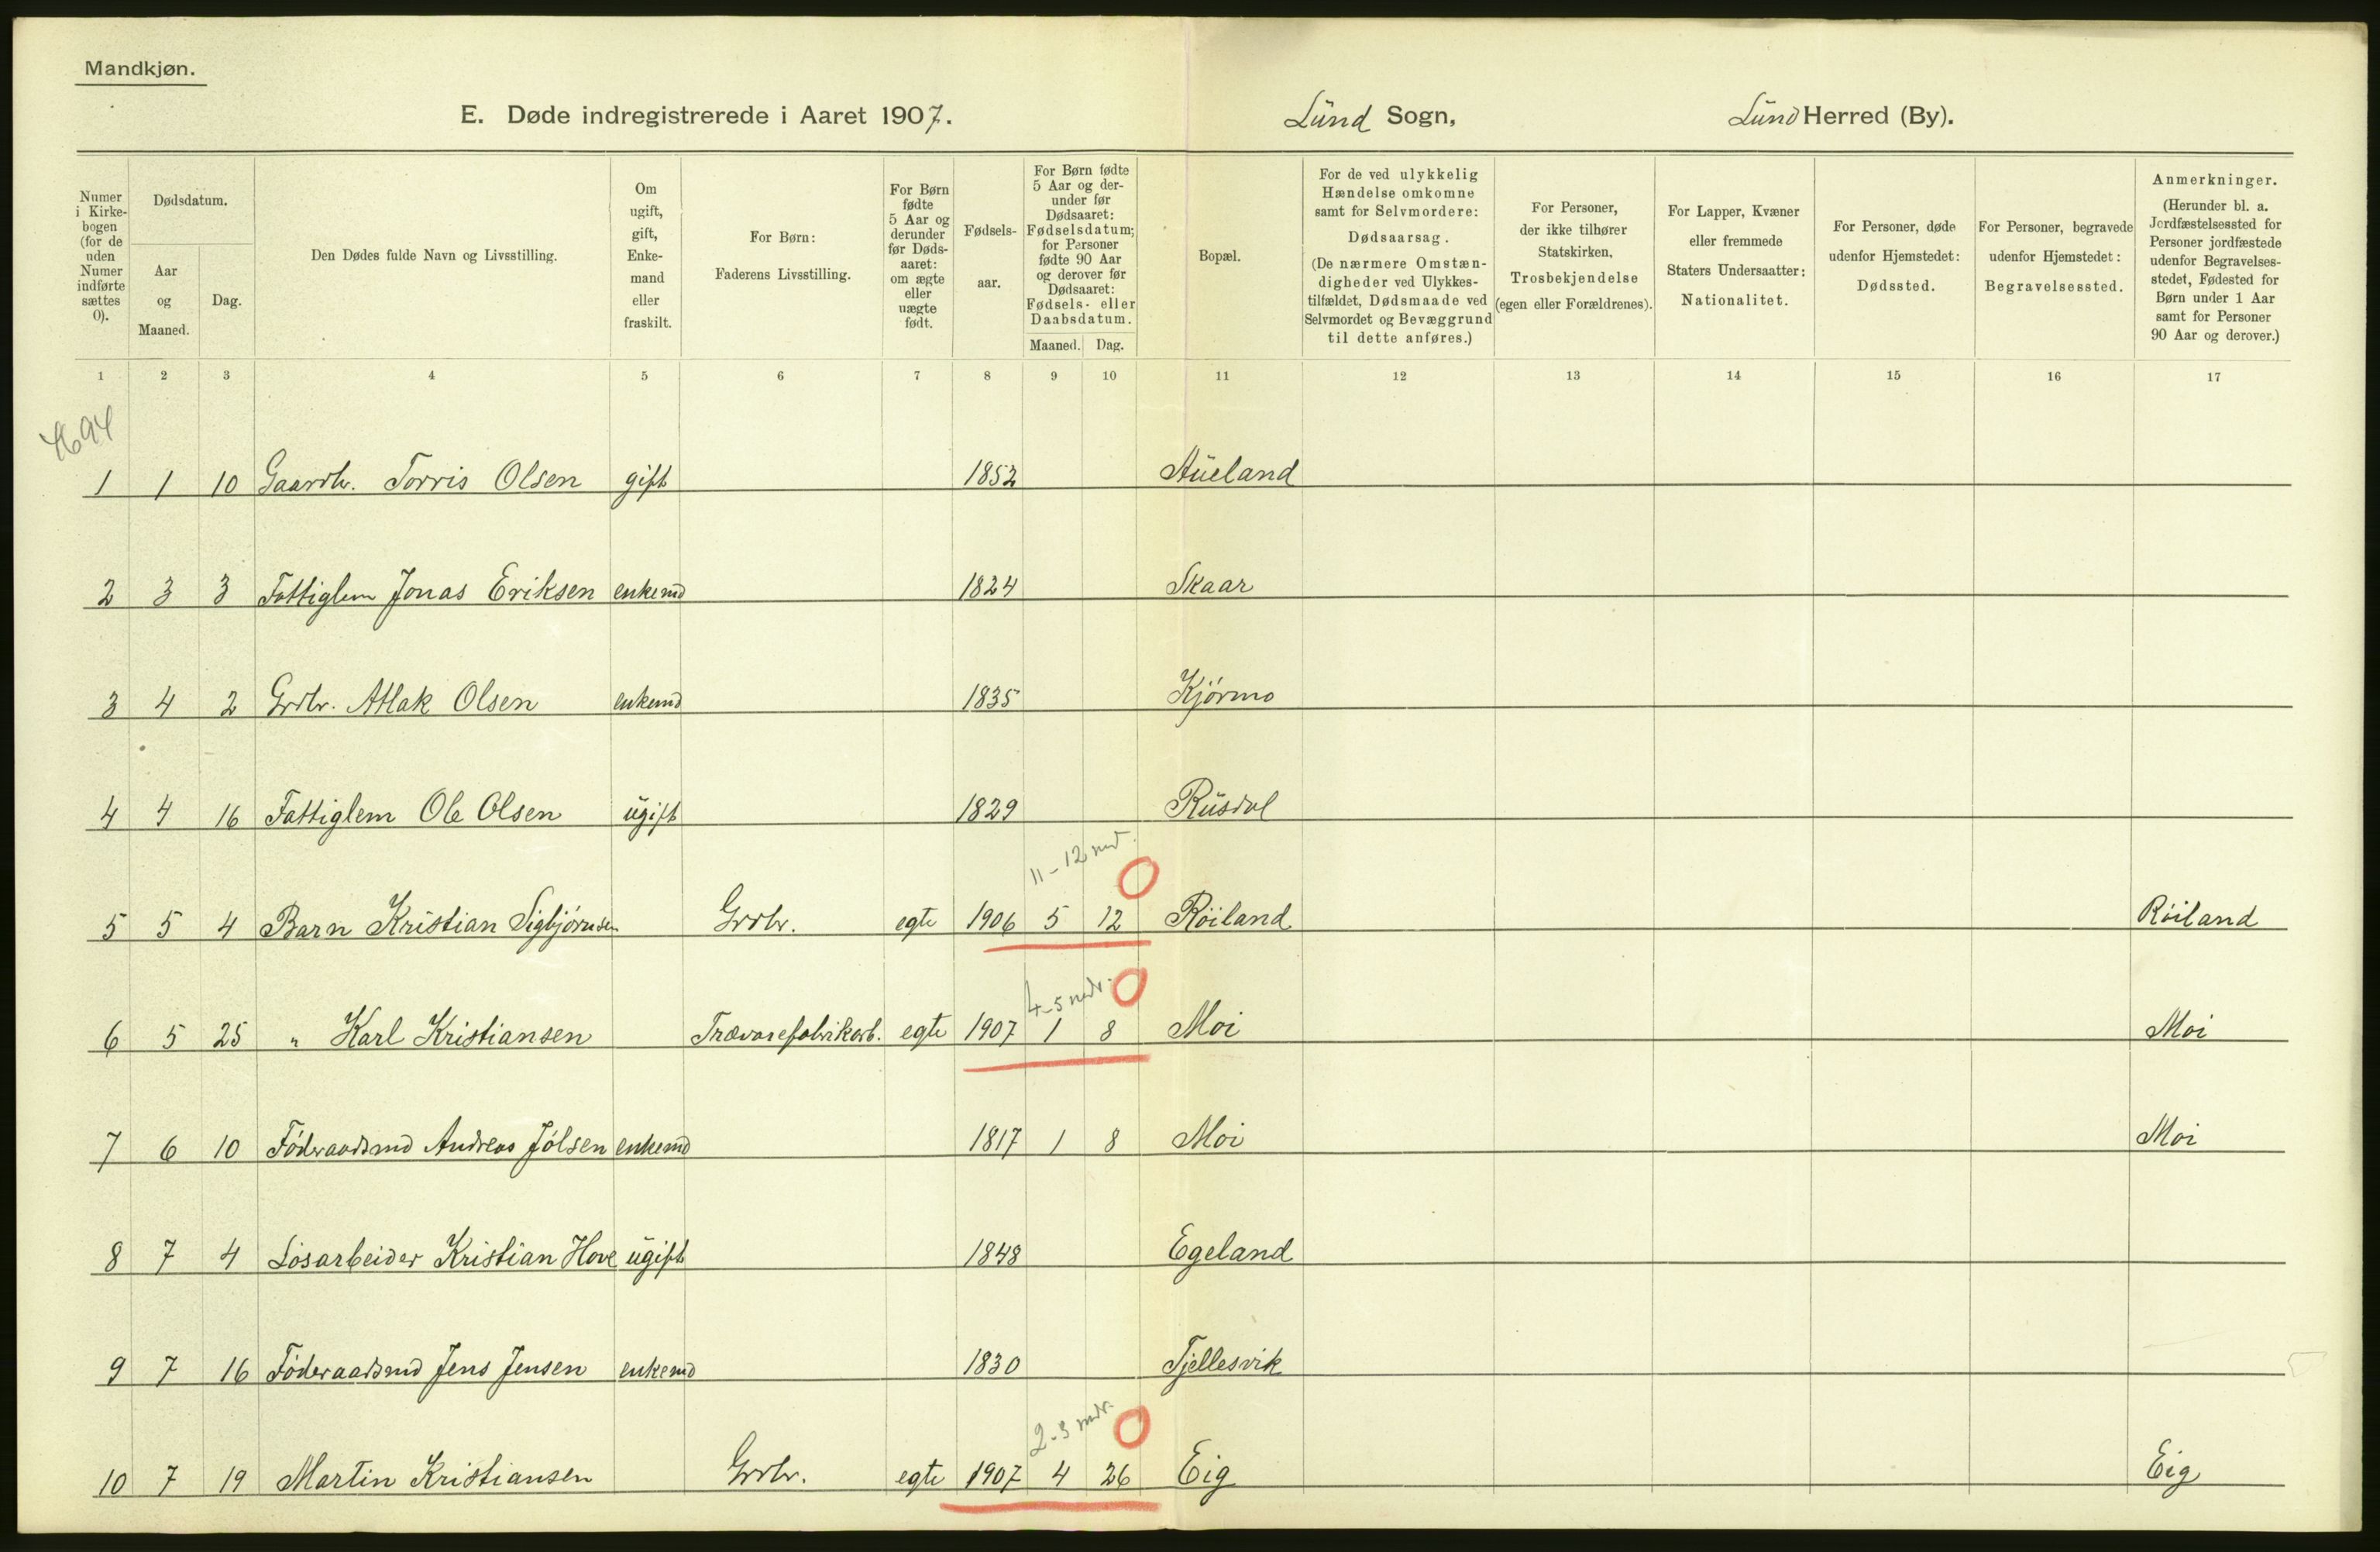 Mandkjøn.
E. Døde indregistrerede i Aaret 1907. Lünd Sogn, Lünd Herred (By).
Numer i Kirkebogen (for de uden Numer indførte sættes 0).
Dødsdatum.
Aar og Maaned.
Dag.
Den Dødes fulde Navn og Livsstilling.
Om ugift, gift, Enkemand eller fraskilt.
For Børn: Faderens Livsstilling.
For Børn fødte 5 Aar og derunder før Dødsaaret: om ægte eller uægte født.
Fødselsaar.
For Børn fødte 5 Aar og derunder før Dødsaaret: Fødselsdatum; for Personer fødte 90 Aar og derover før Dødsaaret: Fødsels- eller Daabsdatum.
Maaned. Dag.
Bopæl.
For de ved ulykkelig Hændelse omkomne samt for Selvmordere: Dødsaarsag. (De nærmere Omstændigheder ved Ulykkestilfældet, Dødsmaade ved Selvmordet og Bevæggrund til dette anføres.)
For Personer, der ikke tilhører Statskirken, Trosbekjendelse (egen eller Forældrenes).
For Lapper, Kvæner eller fremmede Staters Undersaatter: Nationalitet.
For Personer, døde udenfor Hjemstedet: Dødssted.
For Personer, begravede udenfor Hjemstedet: Begravelsessted.
Anmerkninger. (Herunder bl. a. Jordfæstelsessted for Personer jordfæstede udenfor Begravelsesstedet, Fødested for Børn under 1 Aar samt for Personer 90 Aar og derover.)
1 2 3 4 5 6 7 8 9 10 11 12 13 14 15 16 17
1 1 10 Gaardbr. Torris Olsen gift 1852 Aüeland
2 3 3 Fattiglem Jonas Eriksen enkemd 1824 Skaar
3 4 2 Grdbr. Atlak Olsen enkemd 1835 Kjörmo
4 4 16 Fattiglem Ole Olsen ügift 1829 Rüsdal
11-12 md.
5 5 4 Barn Kristian Sigbjörnsen Grdbr. egte 1906 5 12 Röiland Röiland
4-5 mdr.
6 5 25 " Karl Kristiansen Trævarefabrikarb. egte 1907 1 8 Moi Moi
7 6 10 Föderaadsmd Andreas Jölsen enkemd 1817 1 8 Moi Moi
8 7 4 Lösarbeider Kristian Hove ügift 1848 Egeland
9 7 16 Föderaadsmd Jens Jensen enkemd 1830 Tjellesvik
2-3 mdr.
10 7 19 Martin Kristiansen Grdbr. egte 1907 4 26 Eig Eig